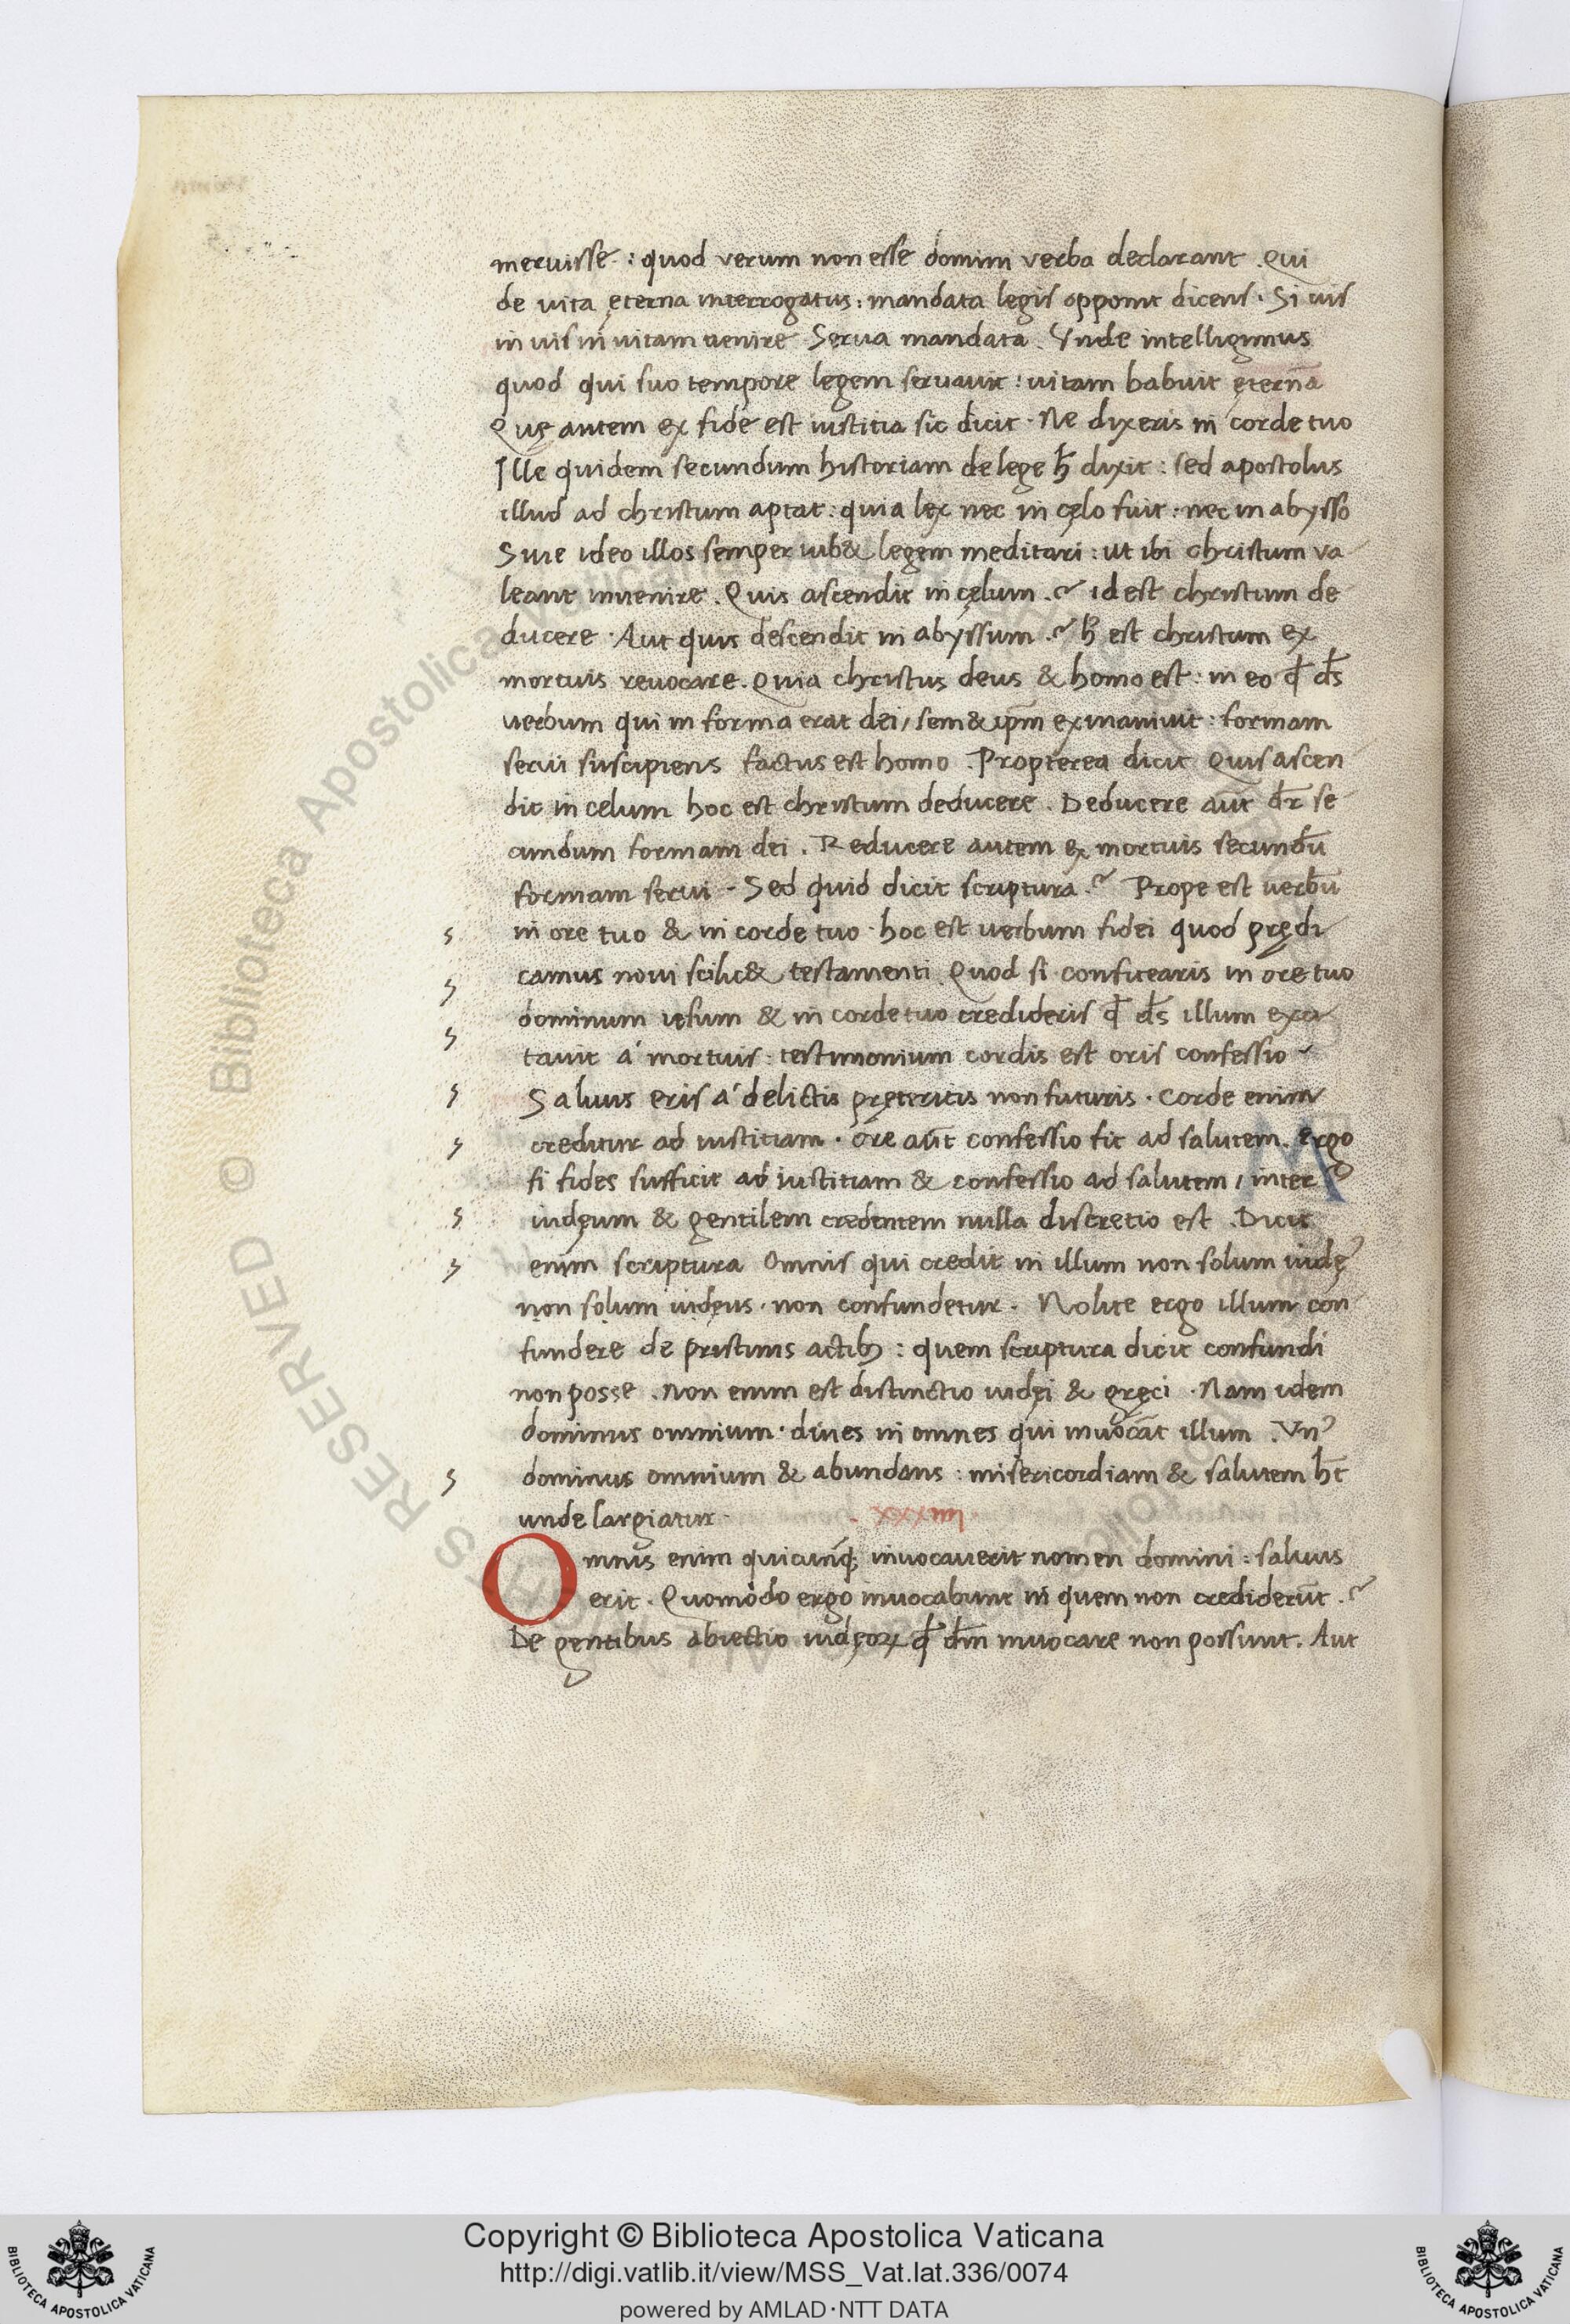 meruisse : quod verum non esse domini verba declarant . Qui
de uita ęterna interrogatus : mandata legis opponit dicens . Si uis
in uis in uitam uenire Serua mandata . Vnde intelligimus
quod qui suo tempore legem seruauit : uitam habuit ętern̄a
Quę autem ex fide est iustitia sic dicit . Ne dixeris in corde tuo
Ille quidem secundum historiam de lege h̄ dixit : sed apostolus
illud ad christum aptat : quia lex nec in cęlo fuit : nec in abysso
Siue ideo illos semper iub& legem meditari : ut ibi christum va
leant inuenire . Quis ascendit in cęlum .? id est christum de
ducere . Aut quis descendit in abyssum .? h̄ est christum ex
mortuis reuocare . Quia christus deus & homo est : in eo q̄ d̄s
uerbum qui in forma erat dei , sem& ip̄m exinaniuit : formam
serui suscipiens factus est homo . Propterea dicit Quis ascen
dit in celum hoc est christum deducere . Deducere aūt d̄r se
cundum formam dei . Reducere autem ex mortuis secundū
formam serui - Sed quid dicit scriptura .? Prope est uerbū
in ore tuo & in corde tuo . hoc est uerbum fidei quod prędi
camus noui scilic& testamenti . Quod si confitearis in ore tuo
dominum iesum & in corde tuo credideris q̄ d̄s illum exci
tauit a' mortuis : testimonium cordis est oris confessio
Saluus eris a' delictis pręteritis non futuris . Corde enim
creditur ad iustitiam . ore aūt confessio fit ad salutem . ergo
si fides sufficit ad iustitiam & confessio ad salutem , inter
iudęum & gentilem credentem nulla discretio est . Dicit
enim scriptura Omnis qui credit in illum non solum iudęꝰ
non solum iudęus . non confundetur . Nolite ergo illum con
fundere de pristinis actibȝ : quem scriptura dicit confundi
non posse . Non enim est distinctio iudęi & gręci . Nam idem
dominus omnium . diues in omnes qui inuocāt illum . Vnꝰ
dominus omnium & abundans : misericordiam & salutem h̄t
unde largiatur .
Omnis enim quicunq; inuocauerit nomen domini : saluus
erit . Quomodo ergo inuocabunt in quem non crediderūt .?
De gentibus abiectio iudęoꝝ q̄ d̄m inuocare non possunt . Aut
M
© Biblioteca Apostolica Vaticana
RESERVED
Copyright © Biblioteca Apostolica Vaticana
http://digi.vatlib.it/view/MSS_Vat.lat.336/0074
powered by AMLAD·NTT DATA
BIBLIOTECA APOSTOLICA VATICANA
BIBLIOTECA APOSTOLICA VATICANA